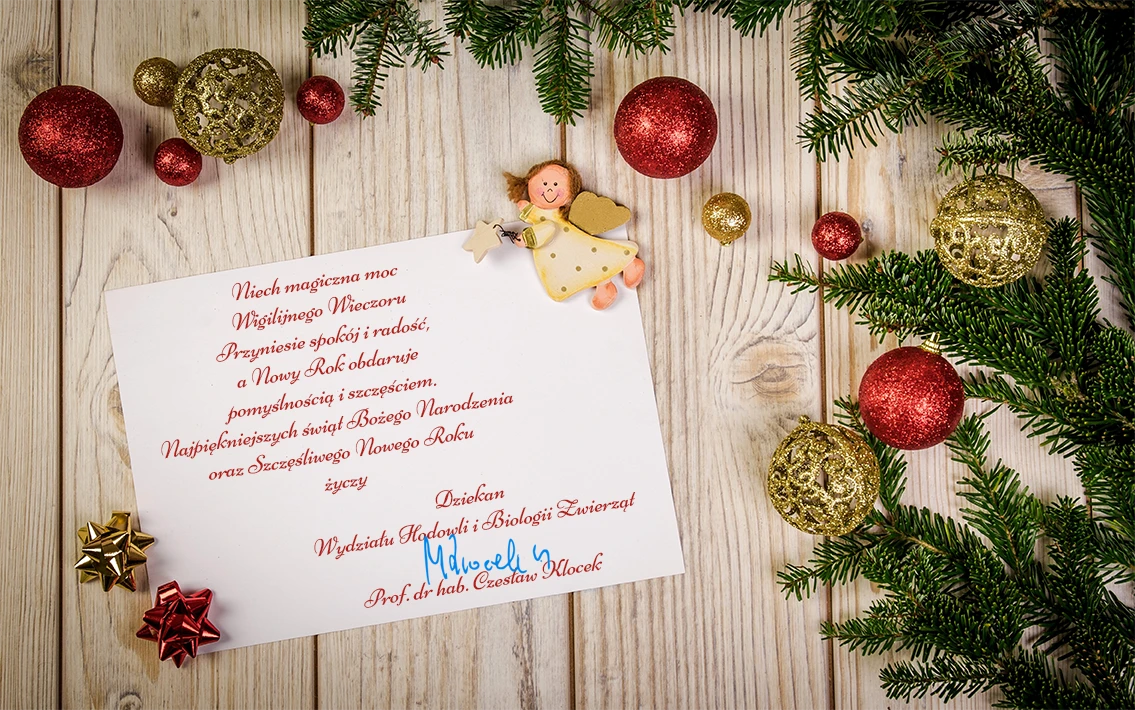 Niech magiczna moc
Wigilijnego Wieczoru
Przyniesie spokój i radość,
a Nowy Rok obdaruje
pomyślnością i szczęściem.
Najpiękniejszych świąt Bożego Narodzenia
oraz Szczęśliwego Nowego Roku
życzy
Dziekan
Wydziału Hodowli i Biologii Zwierząt
Prof. dr hab. Czesław Klocek